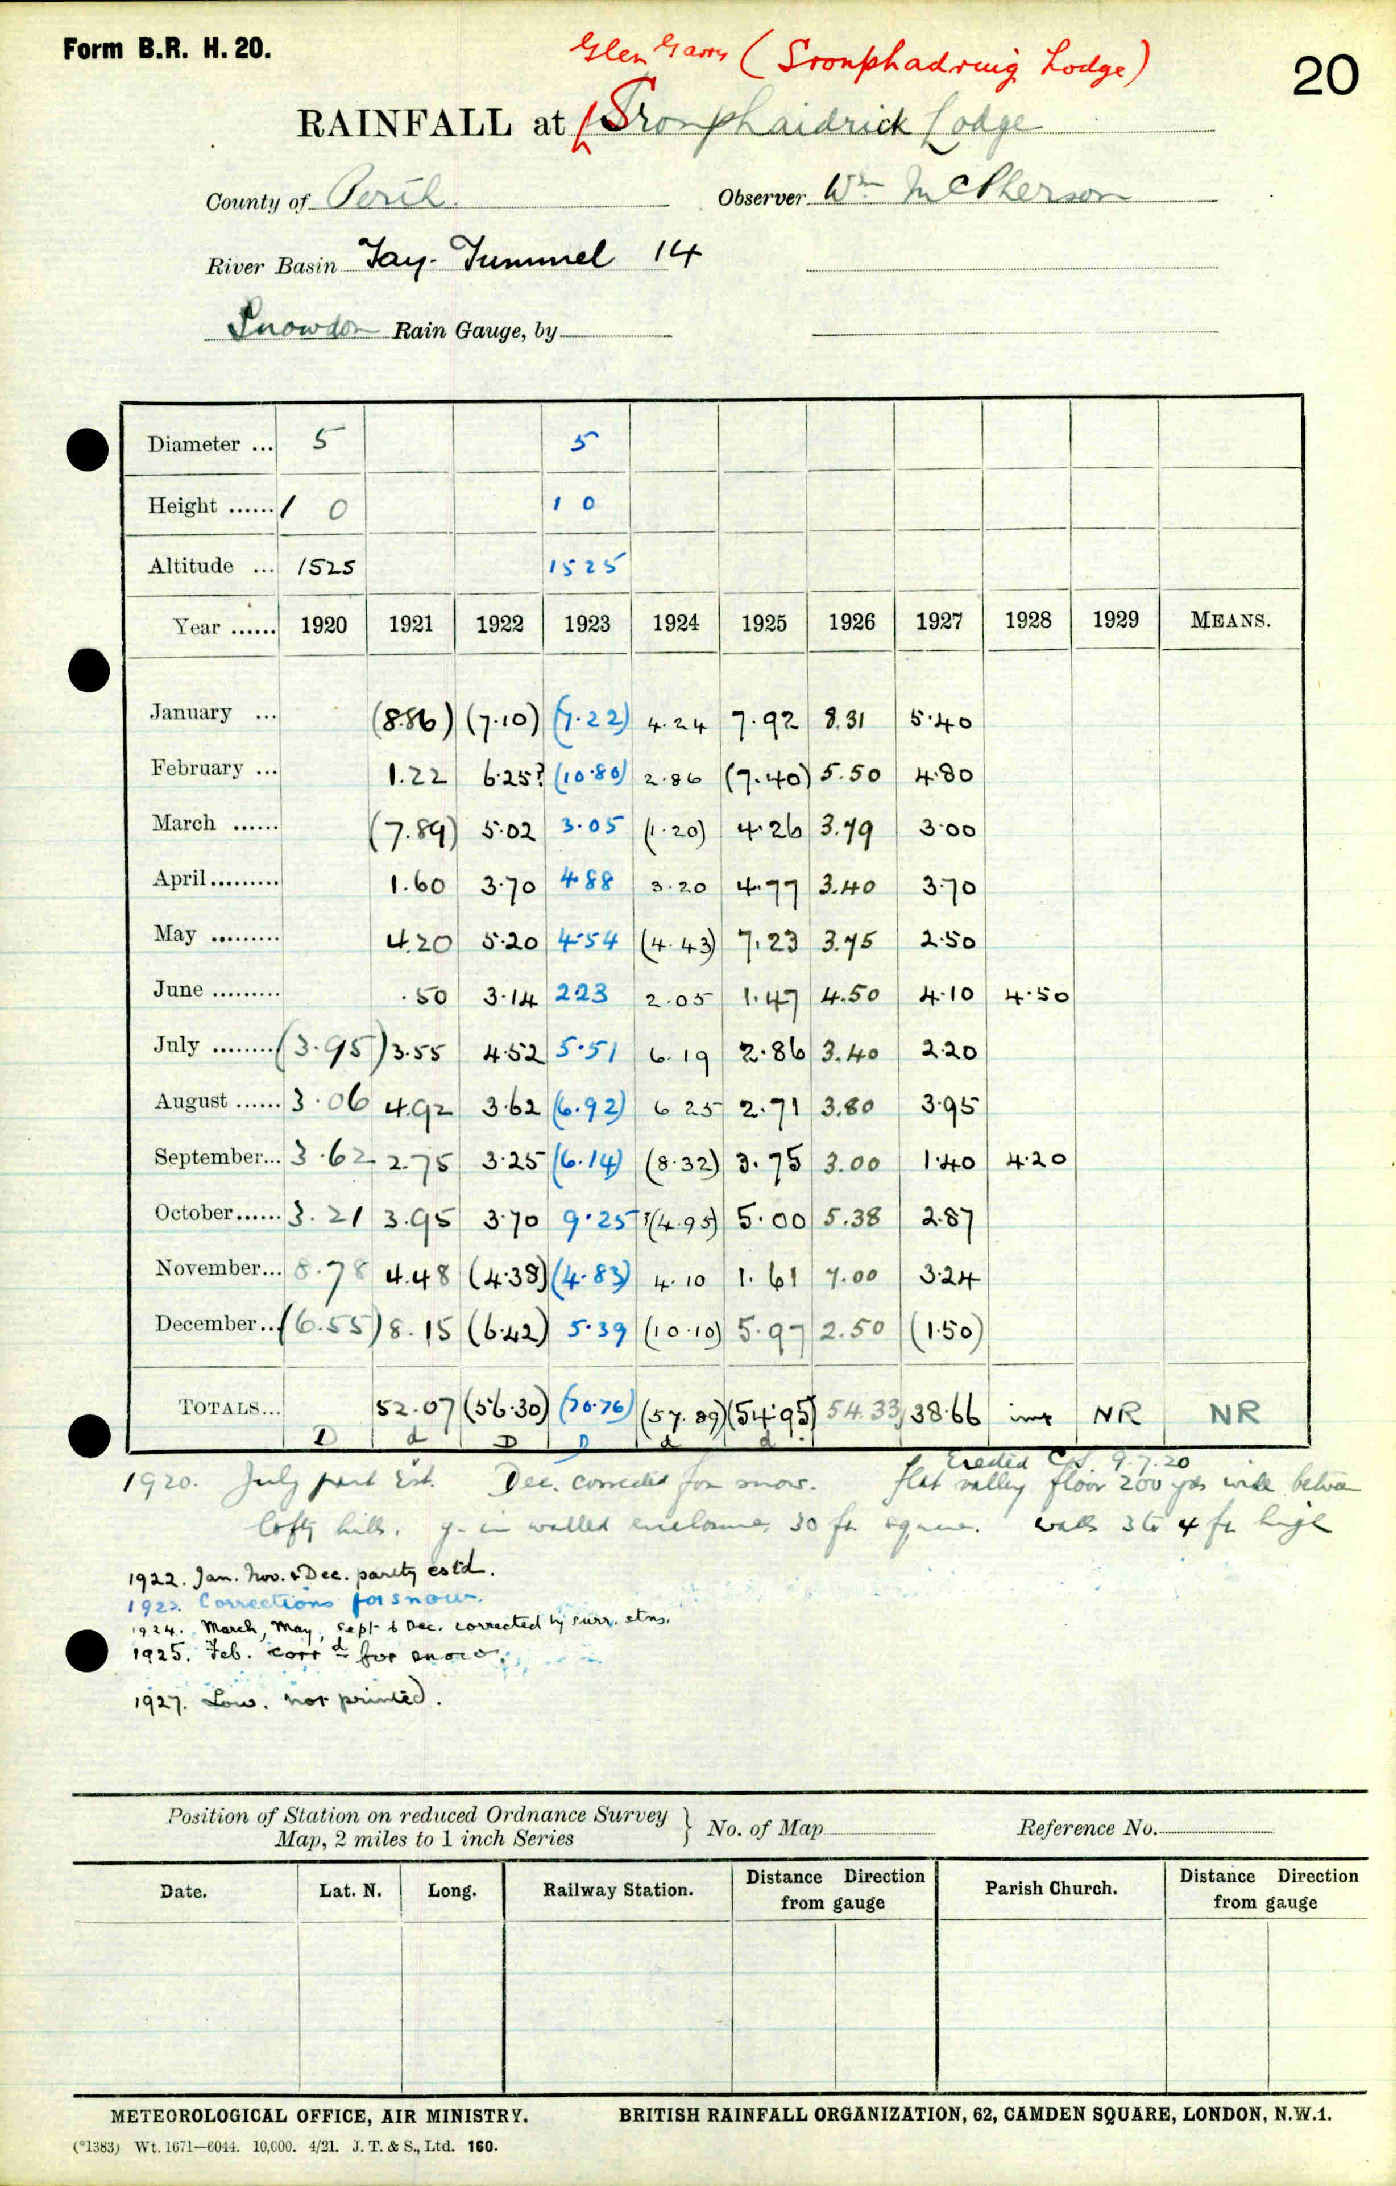 Form B.R. H. 20.
Glen Garry (Sronphadruig Lodge)
20
RAINFALL at Sronphaidrick Lodge
County of Perth. Observer Wm McPherson
River Basin Tay-Tummel 14
Snowdon Rain Gauge, by
Diameter ... 5 5
Height ...... 1 0 1 0
Altitude ... 1525 1525
Year ...... 1920 1921 1922 1923 1924 1925 1926 1927 1928 1929 MEANS.
January ... (8.86) (7.10) (7.22) 4.24 7.92 8.31 5.40
February ... 1.22 6.25? (10.80) 2.86 (7.40) 5.50 4.80
March ...... (7.89) 5.02 3.05 (1.20) 4.26 3.79 3.00
April ......... 1.60 3.70 4.88 3.20 4.77 3.40 3.70
May ......... 4.20 5.20 4.54 (4.43) 7.23 3.75 2.50
June ......... .50 3.14 2.23 2.05 1.47 4.50 4.10 4.50
July ........ (3.95) 3.55 4.52 5.51 6.19 2.86 3.40 2.20
August ...... 3.06 4.92 3.62 (6.92) 6.25 2.71 3.80 3.95
September... 3.62 2.75 3.25 (6.14) (8.32) 3.75 3.00 1.40 4.20
October...... 3.21 3.95 3.70 9.25 (4.95) 5.00 5.38 2.87
November... 8.78 4.48 (4.38) (4.83) 4.10 1.61 7.00 3.24
December... (6.55) 8.15 (6.42) 5.39 (10.10) 5.97 2.50 (1.50)
TOTALS... 52.07 (56.30) (70.76) (57.89) (54.95) 54.33 38.66 imp NR NR
D d D D d d
Erected C.S. 9.7.20
1920. July part Est. Dec. corrected for snow. flat valley floor 200 yds wide between
lofty hills. g. in walled enclosure, 30 ft square. walls 3 to 4 ft high
1922. Jan. Nov. & Dec. partly estd.
1923. Corrections for snow.
1924. March, May, Sept & Dec. corrected by surr. stns.
1925. Feb. corrd for snow.
1927. Low. not printed.
Position of Station on reduced Ordnance Survey
Map, 2 miles to 1 inch Series } No. of Map Reference No.
Date. Lat. N. Long. Railway Station. Distance Direction from gauge Parish Church. Distance Direction from gauge
METEOROLOGICAL OFFICE, AIR MINISTRY. BRITISH RAINFALL ORGANIZATION, 62, CAMDEN SQUARE, LONDON, N.W.1.
(*1383) Wt. 1671—6044. 10,000. 4/21. J. T. & S., Ltd. 160.